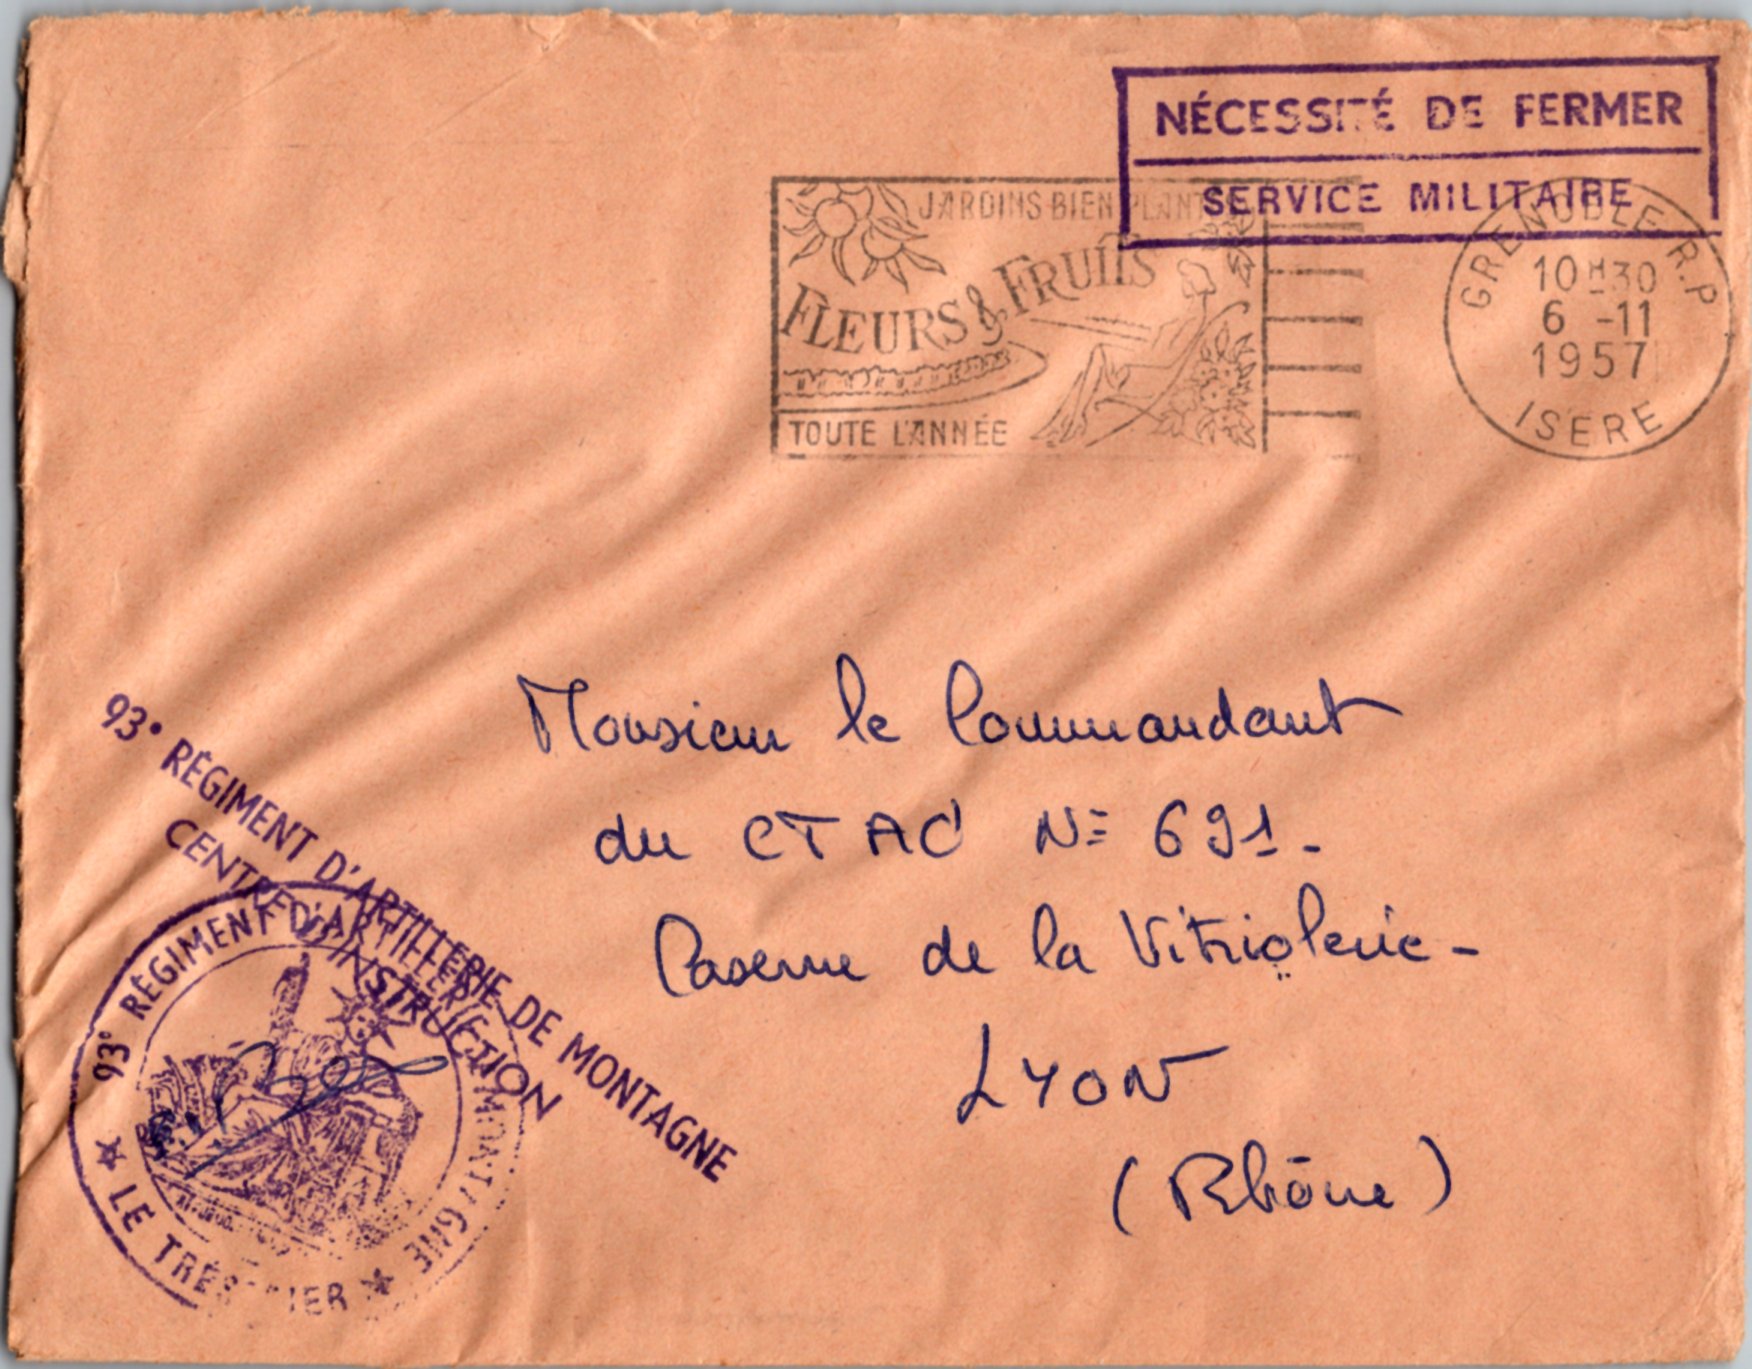 NÉCESSITÉ DE FERMER
SERVICE MILITAIRE
JARDINS BIEN PLANT
FLEURS & FRUITS
TOUTE L'ANNÉE
GRENOBLE R.P
10H30
6 -11
1957
ISERE
Monsieur le Commandant
du CTAC N= 691-
Caserne de la Vitriolerie-
LYON
(Rhône)
93° RÉGIMENT D'ARTILLERIE DE MONTAGNE
CENTRE D'INSTRUCTION
93° RÉGIMENT D'ARTILLERIE DE MONTAGNE
★ LE TRÉSORIER ★